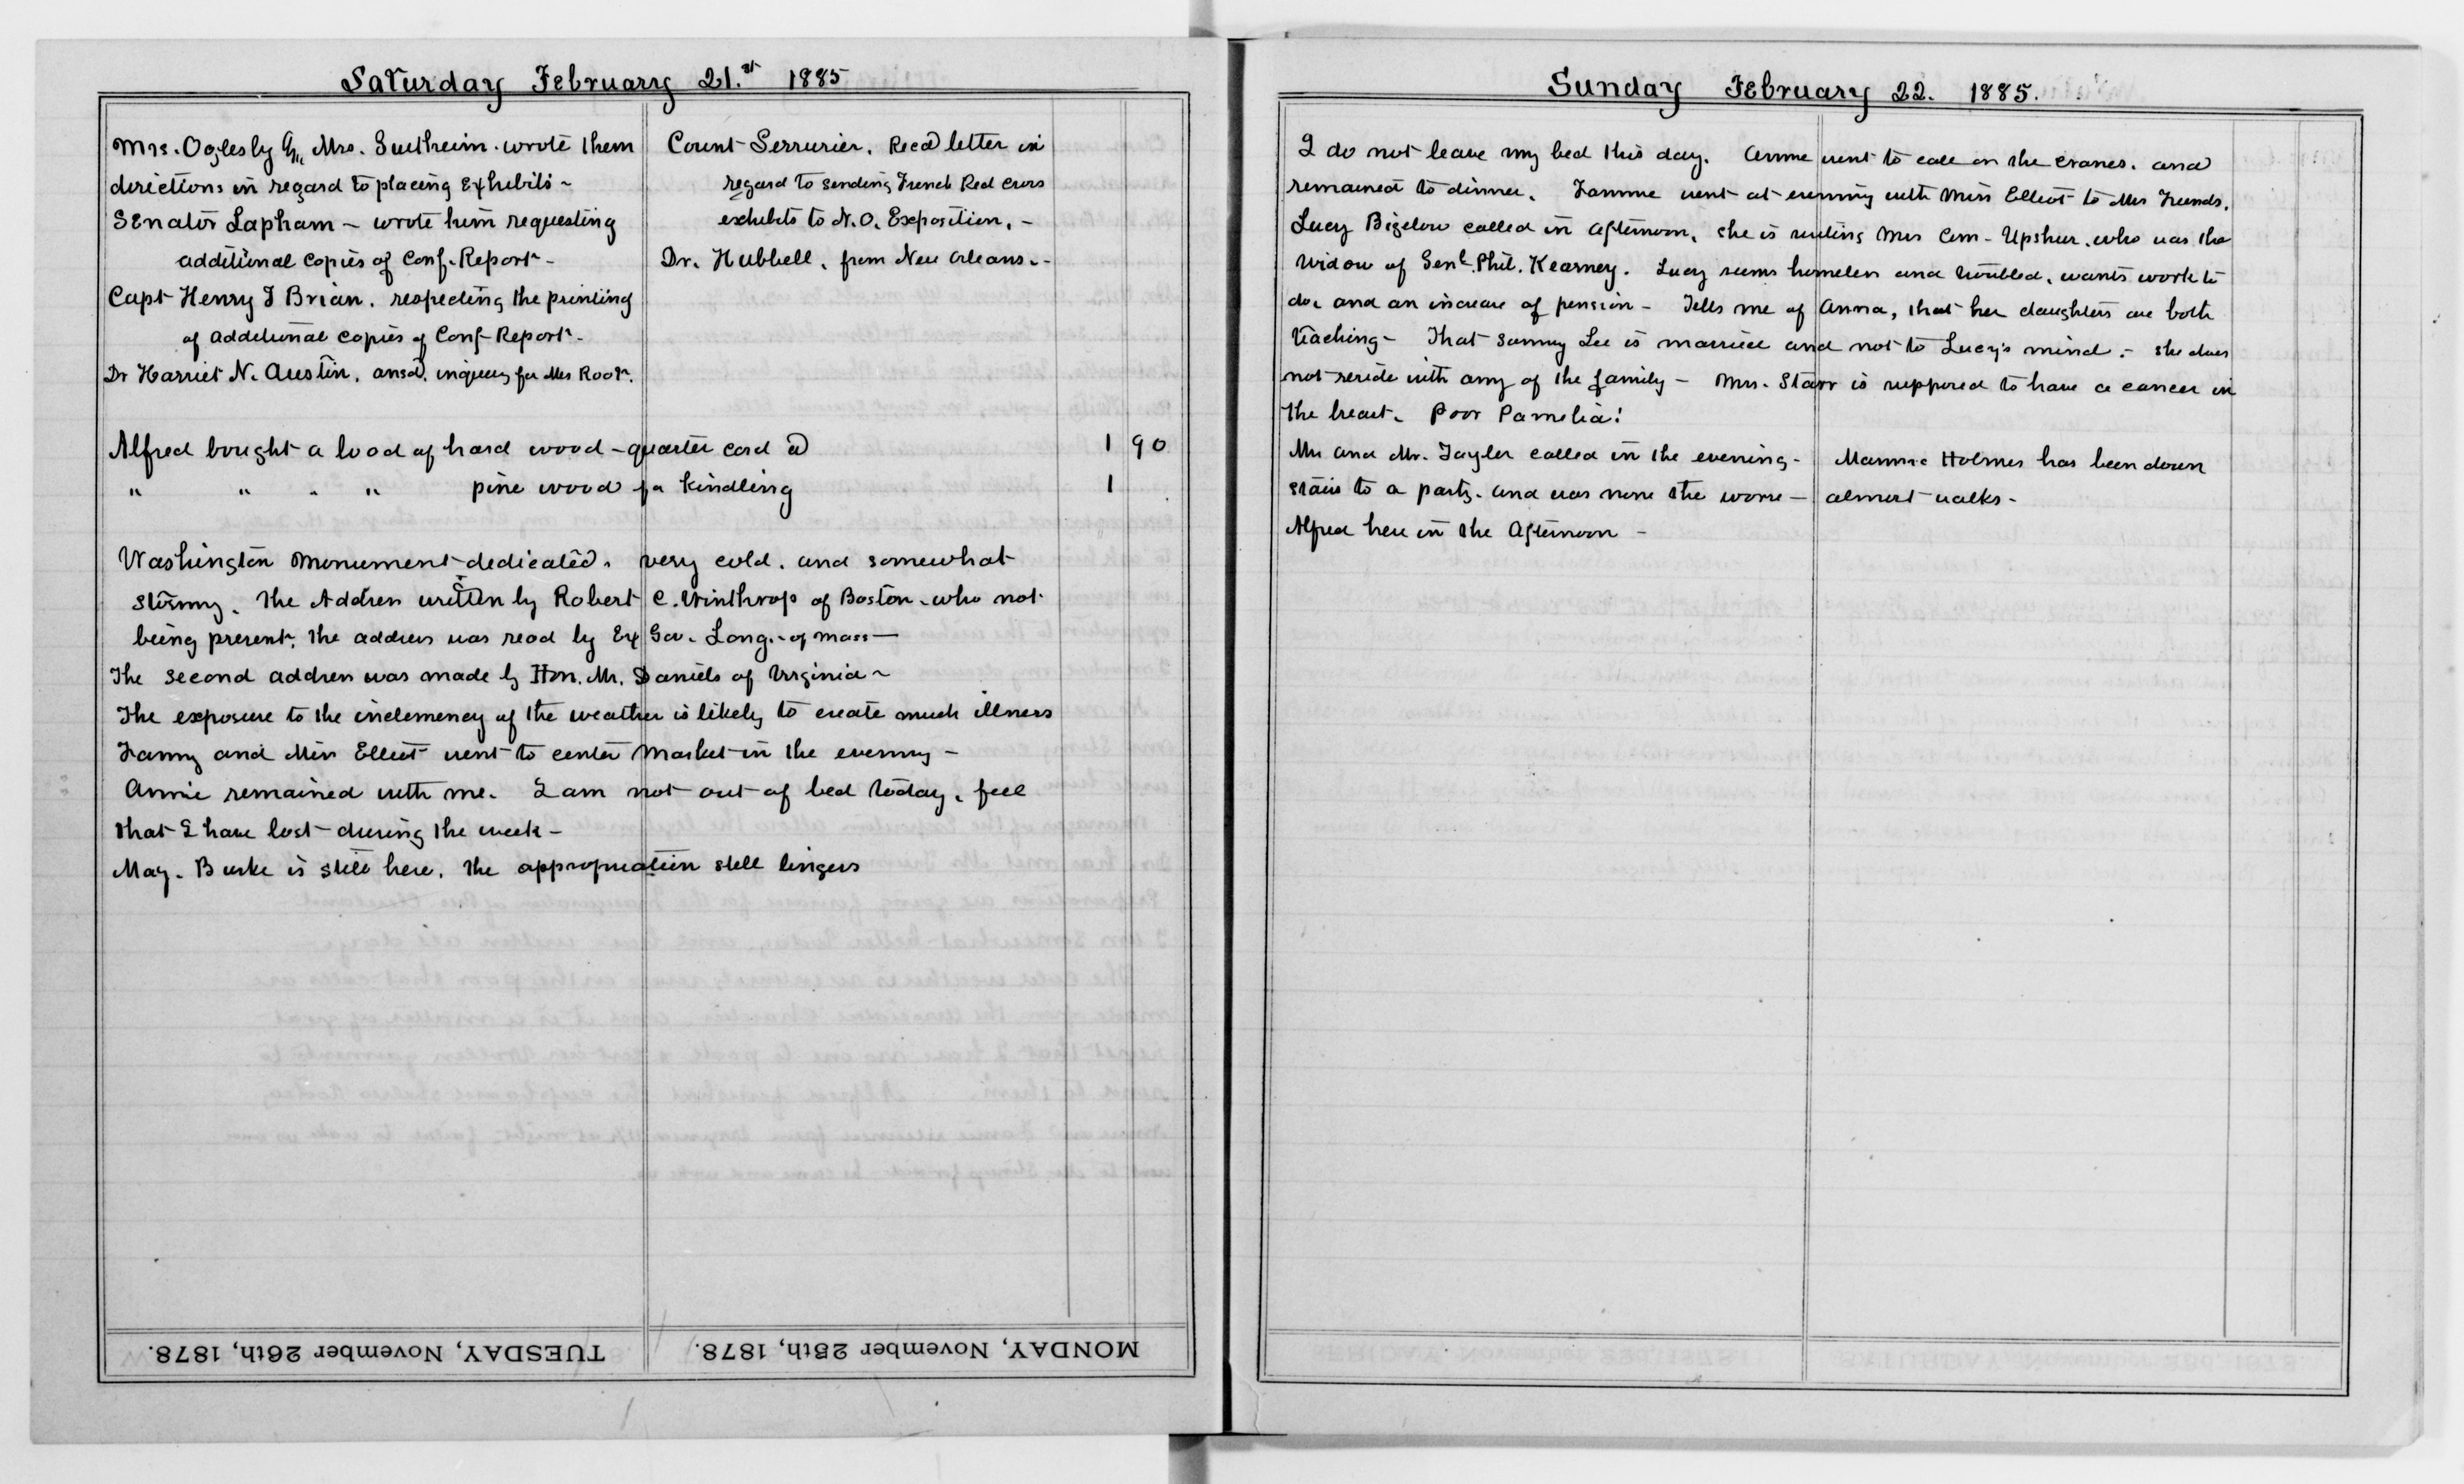 Saturday February 21.st 1885
Mrs. Oglesby & Mrs. Sutheim. wrote them
directions in regard to placing Exhibits -
Senator Lapham - wrote him requesting
additional copies of Conf. Report -
Capt Henry T Brian. respecting the printing
of additional copies of Conf- Report -
Dr Harriet N. Austin. ansd. inquiry for Mrs Root.
Count Serrurier. Recd letter in
regard to sending French Red Cross
exhibits to N.O. Exposition. -
Dr. Hubbell, from New Orleans. -
Alfred bought a load of hard wood - quarter cord @ 1 90
" " " " pine wood for kindling 1
Washington Monument dedicated. very cold. and somewhat
stormy. The Address written by Robert C. Winthrop of Boston - who not
being present, the address was read by Ex Gov. Long. - of Mass -
The second address was made by Hon. Mr. Daniels of Virginia -
The exposure to the inclemency of the weather is likely to create much illness
Fanny and Miss Elliot went to center Market in the evening -
Annie remained with me. I am not out of bed today, feel
that I have lost during the week -
Maj. Burke is still here. the appropriation still lingers
TUESDAY, November 26th, 1878.
MONDAY, November 25th, 1878.
Sunday February 22. 1885.
I do not leave my bed this day. Annie went to call on the Cranes. and
remained to dinner. Fannie went at evening with Miss Elliot to Mrs Friends.
Lucy Bigelow called in afternoon, she is visiting Mrs Com - Upshur. who was the
widow of Genl. Phil. Kearney. Lucy seems homeless and troubled, wants work to
do, and an increase of pension - Tells me of Anna, that her daughters are both
teaching - That Sammy Lee is married and not to Lucy's mind. - she does
not reside with any of the family - Mrs. Starr is supposed to have a cancer in
the breast. Poor Pamelia!
Mrs and Mr. Tayler called in the evening - Mammie Holmes has been down
stairs to a party. and was none the worse - almost walks -
Alfred here in the Afternoon -